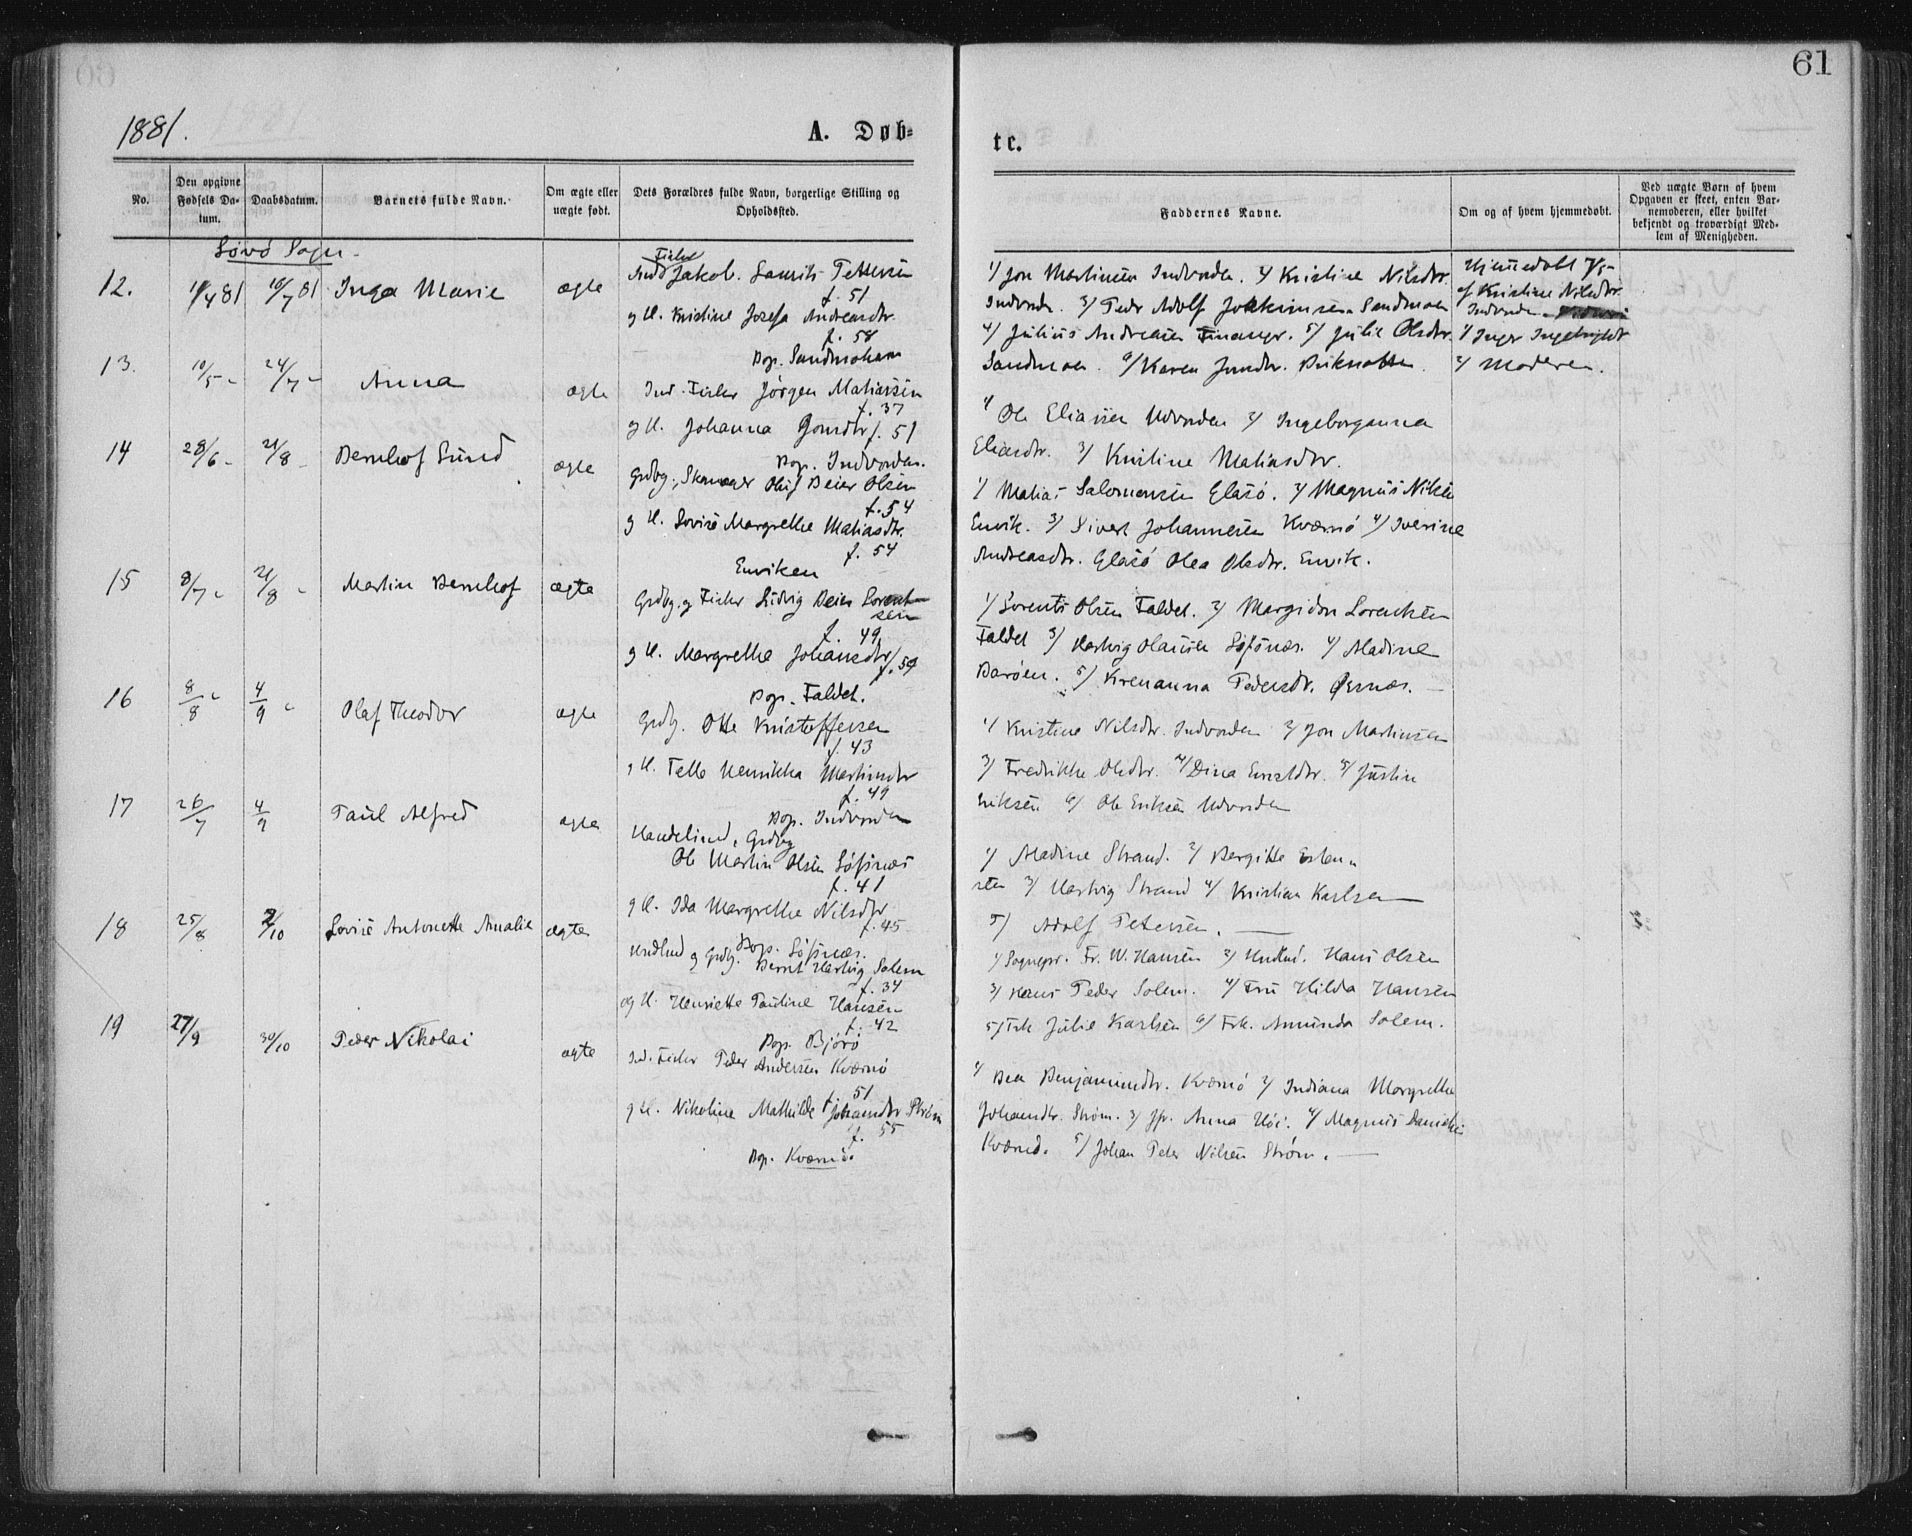 61
1881.
A. Døb-
te.
No.
Den opgivne Fødsels Datum.
Daabsdatum.
Barnets fulde Navn.
Om ægte eller uægte født.
Dets Forældres fulde Navn, borgerlige Stilling og Opholdssted.
Faddernes Navne.
Om og af hvem hjemmedøbt.
Ved uægte Børn af hvem Opgaven er skeet, enten Barnemoderen, eller hvilket bekjendt og troværdigt Medlem af Menigheden.
Sørø Sogn
12. 81 10/7 81 Inga Marie ægte
Fisker
Jakob Laurits Pettersen
f. 51
g H. Kristine Josefa Andreasdtr.
f. 58
Bop. Sandmoham
1/ Jon Martinsen Indvorden. 2/ Kristine Nilsdtr.
Indvorden. 3/ Peder Adolf Joakimsen Sandmoen
4/ Julius Andreasen Finanger. 5/ Julie Olsdtr.
Sandmoen. 6/ Karen Jensdtr.
Hjemmedøbt
af Kristine Nilsdtr.
Indvorden
1/ Inger Ingebrigtdtr
2/ Moderen.
13. 10/5 - 24/7 - Anna ægte
Ind. Fisker Jørgen Matiassen
f. 37
g H. Johanna Jonsdtr f. 51
Bop. Indvorden.
1/ Ole Eliassen Udvorden 2/ Ingeborganna
Eliasdtr. 3/ Kristine Matiasdtr.
14 28/6 - 21/8 - Bernhof Sund ægte
Grdbg. Skomager Oluf Beier Olsen
f. 54
g H. Lovise Margrethe Matiasdtr.
f. 54
Enviken
1/ Matias Salomonsen Glasø. 2/ Magnus Nilsen
Envik. 3/ Sivert Johannesen Kværnø 4/ Iverine
Andreasdtr. Glasø Olea Olsdtr. Envik.
15 8/7 - 21/8 - Martin Bernhof ægte
Grdbg. g Fisker Ludvig Beier Lorent-
sen
f. 49
g H. Margrethe Johansdtr f. 59
Bop. Faldet.
1/ Lorents Olsen Faldet. 2/ Margidon Lorentsen
Faldet 3/ Hartvig Olaussen Søfsnæs. 4/ Aladine
Barøen. 5/ Krenanna Pedersdtr. Øsnæs.
16 8/8 - 4/9 - Olaf Theodor ægte
Grdbg. Otte Kristoffersen
f. 43
g H. Henrikka Martinsdtr
f. 49
Bop. Indvorden
1/ Kristine Nilsdtr. Indvorden 2/ Jon Martinsen
3/ Fredrikke Olsdtr. 4/ Dina 5/ Justin
Eriksen 6/ Ole Eriksen Udvorden
17 26/7 4/9 Paul Alfred ægte
Handelsmd, Grdbg
Ole Martin Olsen Søfsnæs
f. 41
g H. Ida Margrethe Nilsdtr
f. 45
Bop. Søfsnæs.
1/ Aladine Strand. 2/ Bergitte
3/ Hartvig Strand 4/ Kristian Karlsen
5/ Adolf Petersen.
18 25/8 2/10 Lovise Antonette Amalie ægte
Hndlmd g Grdbg.
Bernt Hartvig Solem
f. 34
og H. Henriette Pauline Hansen
f. 42
Bop. Bjørø
1/ Sognepr. Fr. W. Hansen 2/ Hndlmd. Hans Olsen
3/ Hans Peder Solem. 4/ Fru Hilda Hansen
5/ Frk Julie Karlsen 6/ Frk. Amunda Solem.
19 27/9 30/10 Peder Nikolai ægte
Ind. Fisker Peder Andersen Kværnø
f. 51
g H. Nikoline Mathilde Johansdtr Strøm
f. 55
Bop. Kværnø.
1/ Bea Benjaminsdtr. Kværnø 2/ Indiana Margrethe
Johansdtr. Strøm. 3/ Jfr. Anna 4/ Magnus
Kværnø. 5/ Johan Peter Nilsen Strøm.